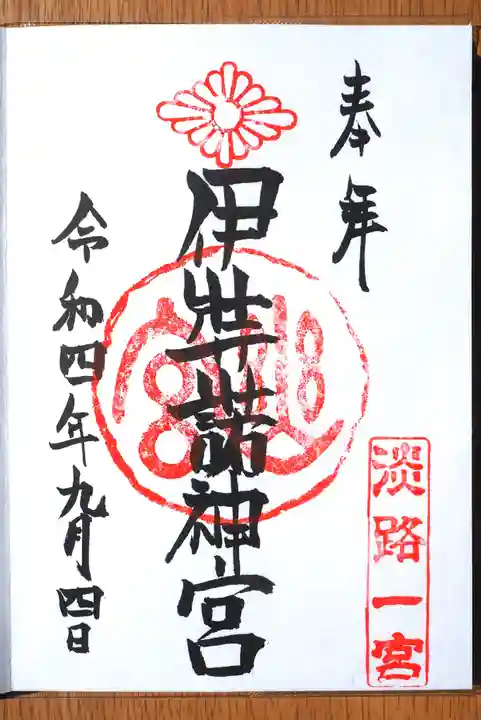 奉拝
淡路一宮
伊弉諾神宮
令和四年九月四日